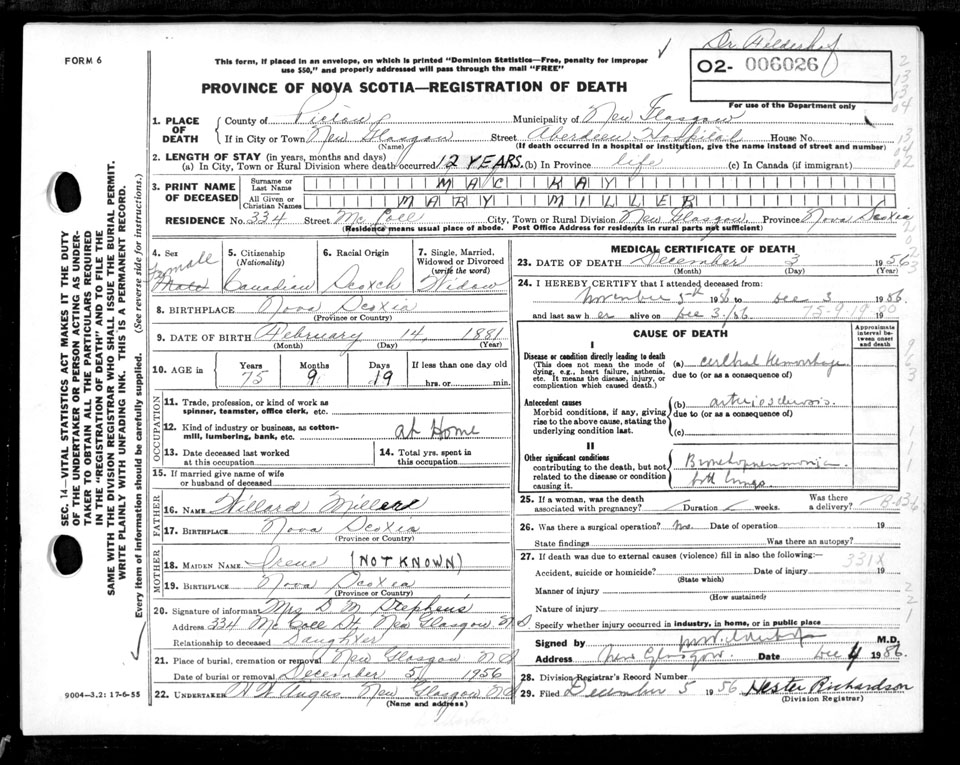 Dr. Felderhof
FORM 6
This form, if placed in an envelope, on which is printed "Dominion Statistics—Free, penalty for improper
use $50," and properly addressed will pass through the mail "FREE"
O2- 006026
For use of the Department only
PROVINCE OF NOVA SCOTIA—REGISTRATION OF DEATH
1. PLACE OF DEATH
County of Pictou Municipality of New Glasgow
If in City or Town New Glasgow Street Aberdeen Hospital House No.
(Name) (If death occurred in a hospital or institution, give the name instead of street and number)
2. LENGTH OF STAY (in years, months and days)
(a) In City, Town or Rural Division where death occurred 12 YEARS. (b) In Province life (c) In Canada (if immigrant)
3. PRINT NAME OF DECEASED
Surname or Last Name MAC KAY
All Given or Christian Names MARY MILLER
RESIDENCE No. 334 Street McColl City, Town or Rural Division New Glasgow. Province Nova Scotia
(Residence means usual place of abode. Post Office Address for residents in rural parts not sufficient)
4. Sex Female Male
5. Citizenship (Nationality) Canadian
6. Racial Origin Scotch
7. Single, Married, Widowed or Divorced (write the word) Widow
8. BIRTHPLACE Nova Scotia
(Province or Country)
9. DATE OF BIRTH February 14, 1881
(Month) (Day) (Year)
10. AGE in Years 75 Months 9 Days 19 If less than one day old hrs. or min.
OCCUPATION
11. Trade, profession, or kind of work as spinner, teamster, office clerk, etc.
12. Kind of industry or business, as cotton-mill, lumbering, bank, etc. at Home
13. Date deceased last worked at this occupation
14. Total yrs. spent in this occupation
15. If married give name of wife or husband of deceased
FATHER
16. NAME Willard Millard
17. BIRTHPLACE Nova Scotia
(Province or Country)
MOTHER
18. MAIDEN NAME Irene (NOT KNOWN)
19. BIRTHPLACE Nova Scotia
(Province or Country)
20. Signature of informant Mrs D M Stephens
Address 334 McColl St. New Glasgow N S
Relationship to deceased Daughter
21. Place of burial, cremation or removal New Glasgow N S
Date of burial or removal December 5, 1956
22. UNDERTAKER H W Angus New Glasgow N S
(Name and address)
MEDICAL CERTIFICATE OF DEATH
23. DATE OF DEATH December 3 1956
(Month) (Day) (Year)
24. I HEREBY CERTIFY that I attended deceased from:
November 5th 1956 to Dec 3 1956
and last saw her alive on Dec 3, /56 75-9-19-00
CAUSE OF DEATH
Approximate interval between onset and death
I
Disease or condition directly leading to death
(This does not mean the mode of dying, e.g., heart failure, asthenia, etc. It means the disease, injury, or complication which caused death.)
(a) cerebral Hemorrhage
due to (or as a consequence of)
Antecedent causes
Morbid conditions, if any, giving rise to the above cause, stating the underlying condition last.
(b) arteriosclerosis.
due to (or as a consequence of)
(c)
II
Other significant conditions
contributing to the death, but not related to the disease or condition causing it.
Bronchopneumonia
both lungs.
25. If a woman, was the death associated with pregnancy? Duration weeks. Was there a delivery?
26. Was there a surgical operation? no. Date of operation 19
State findings Was there an autopsy?
27. If death was due to external causes (violence) fill in also the following:—
331X
Accident, suicide or homicide? Date of injury 19
(State which)
Manner of injury
(How sustained)
Nature of injury
Specify whether injury occurred in industry, in home, or in public place
Signed by M.D.
Address New Glasgow. Date Dec 4 1956
28. Division Registrar's Record Number
29. Filed December 5 1956 Hester Richardson
(Division Registrar)
SEC. 14—VITAL STATISTICS ACT MAKES IT THE DUTY
OF THE UNDERTAKER OR PERSON ACTING AS UNDER-
TAKER TO OBTAIN ALL THE PARTICULARS REQUIRED
IN THE "REGISTRATION OF DEATH" AND TO FILE THE
SAME WITH THE DIVISION REGISTRAR WHO SHALL ISSUE THE BURIAL PERMIT.
WRITE PLAINLY WITH UNFADING INK. THIS IS A PERMANENT RECORD.
Every item of information should be carefully supplied. (See reverse side for instructions.)
9004—3.2: 17-6-55